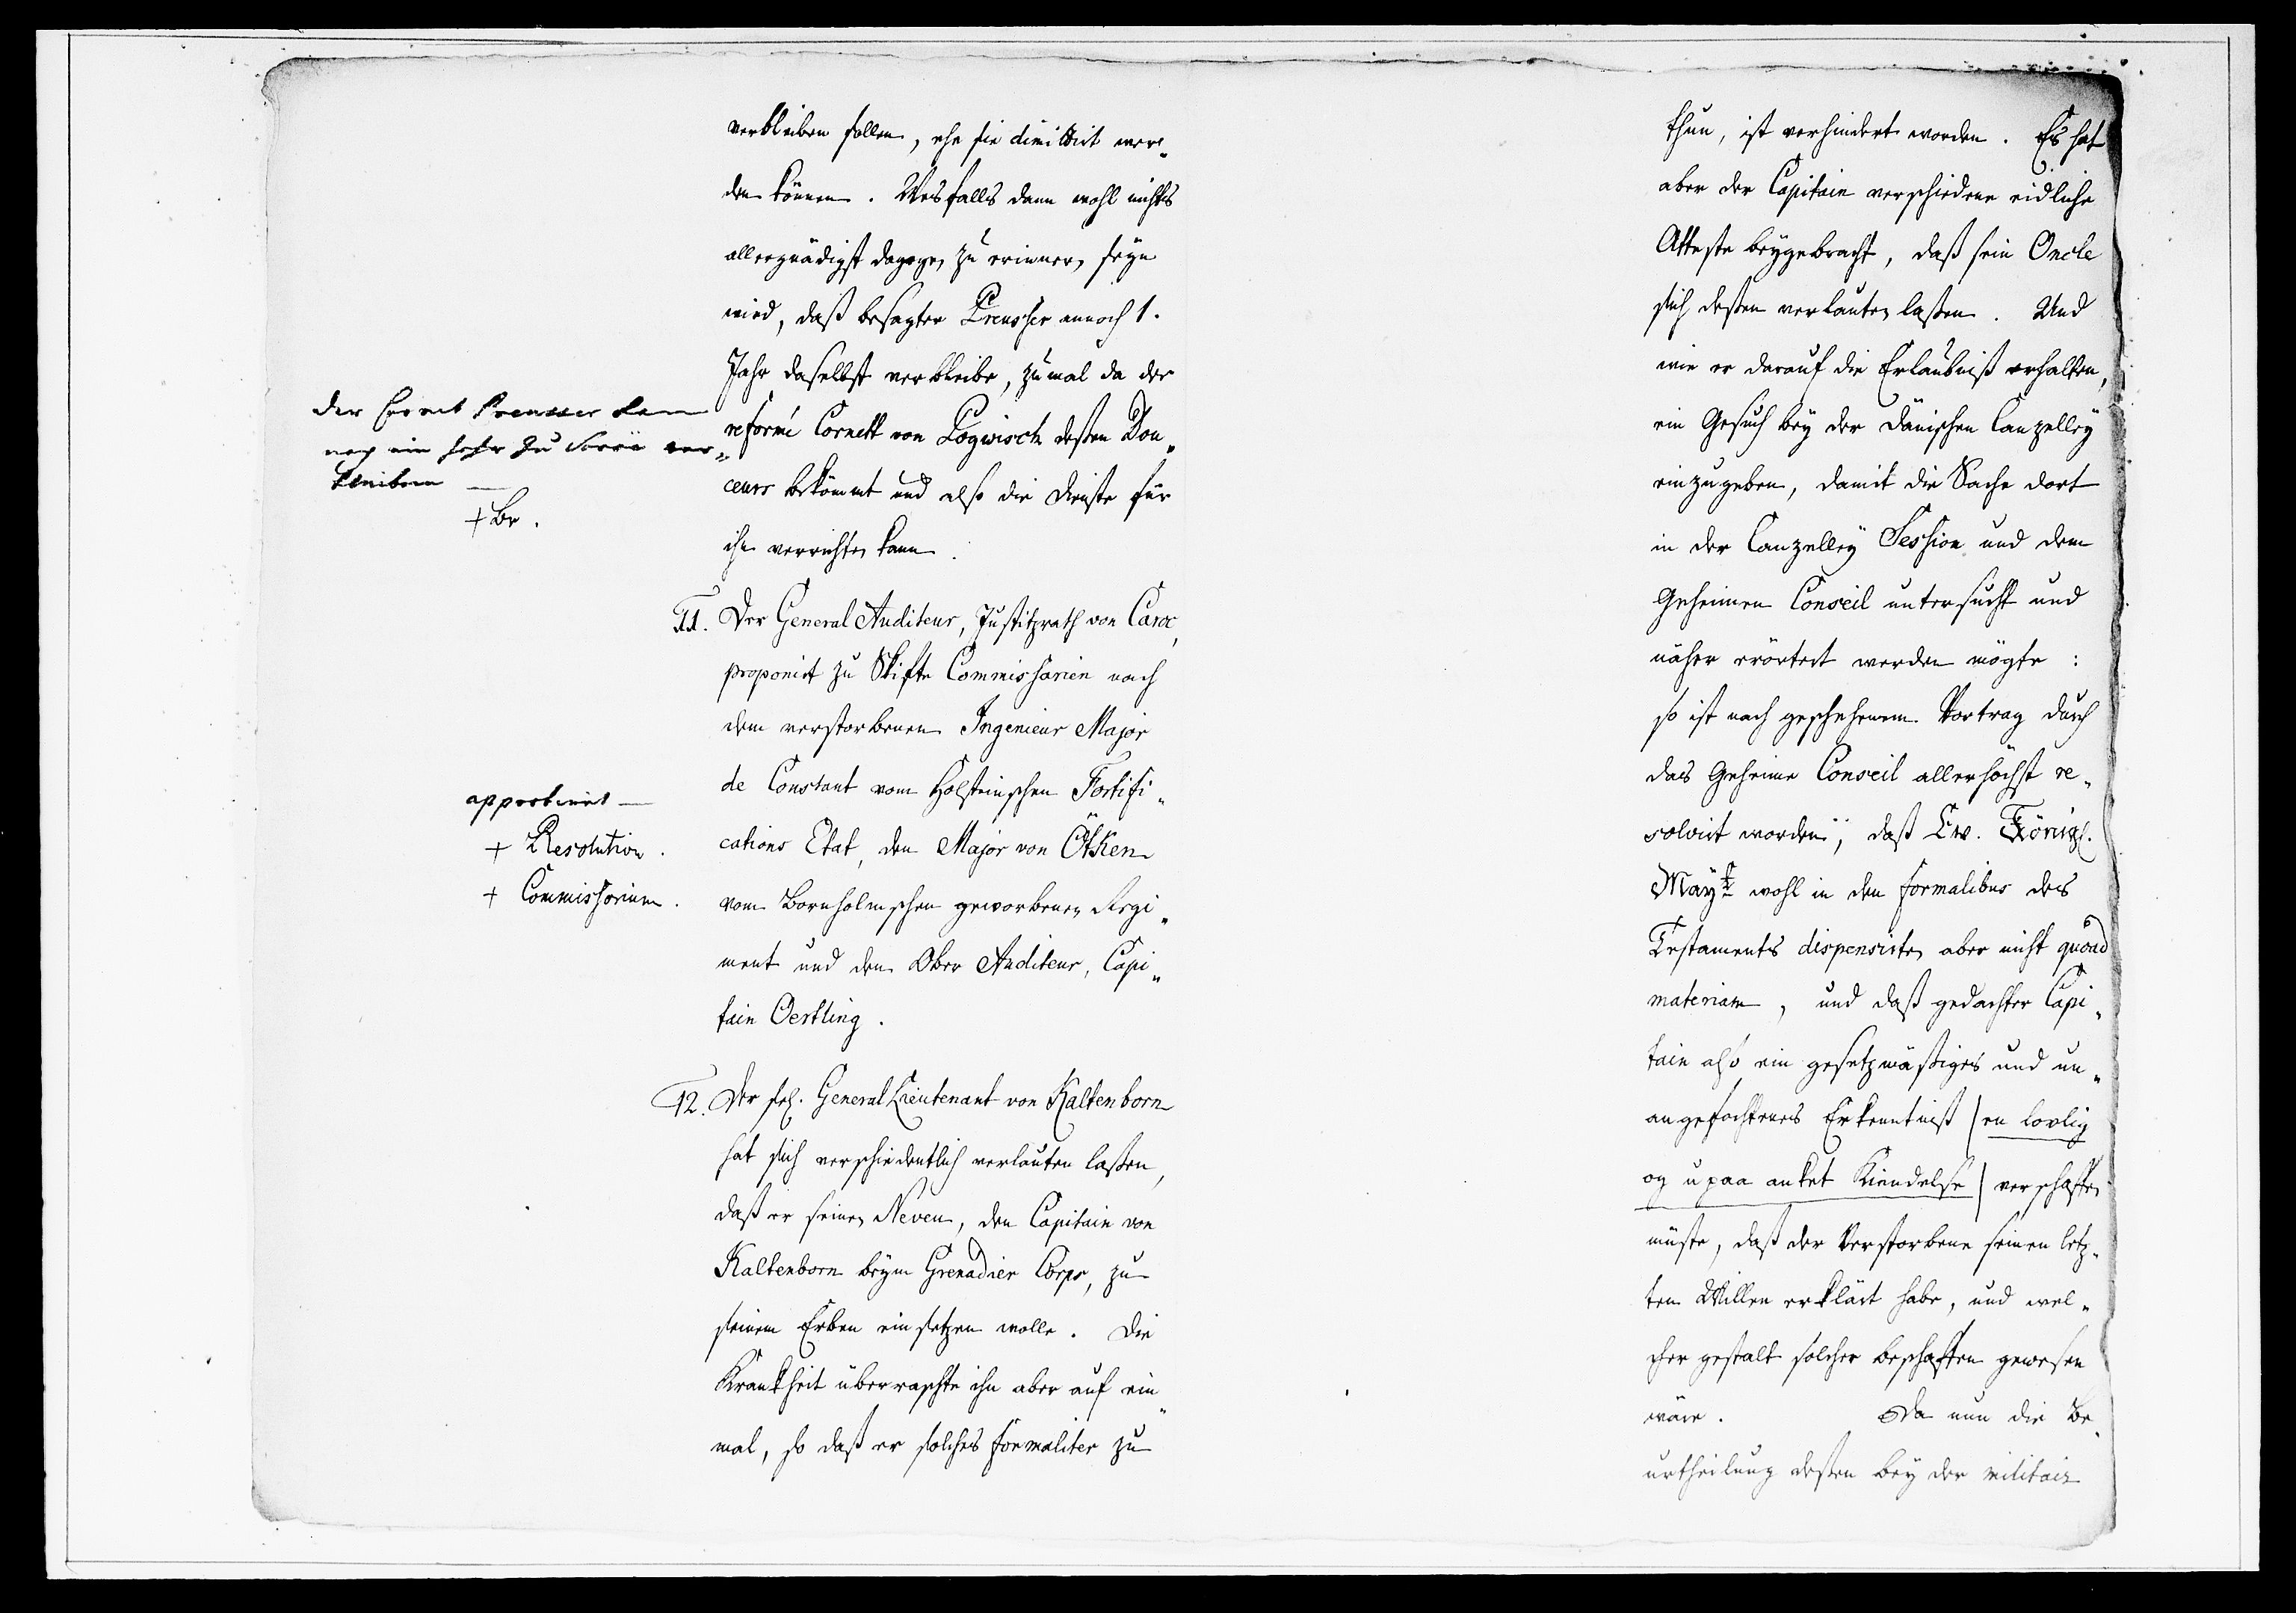 verbleiben sollen, ehe sie dimittirt wer„
den können. Wesfalls dann wohl nichts
allergnädigst dagegen zu erinnern seyn
wird, daß besagter Preusser annoch 1.
Jahr daselbst verbleibe, zumal da der
reformé Cornett von Logwisch deßen Dou„
ceurs bekömmt und also die Dienste für
ihn verrichten kann.
Der Cornet Preusser kan
noch ein Jahr zu Soröe ver„
bleiben
+ Br.
11. Der General Auditeur, Justitzrath von Caroc,
proponirt zu Skifte Commissarien nach
dem verstorbenen Ingenieur Major
de Constant vom Holsteinschen Fortifi„
cations Etat, den Major von Ötken
vom Bornholmschen geworbenen Regi„
ment und den Ober Auditeur, Capi„
tain Oertling.
approbirt
+ Resolution.
+ Commissorium.
12. Der sel. General Lieutenant von Kaltenborn
hat sich verschiedentlich verlauten laßen,
daß er seinen Neveu, den Capitain von
Kaltenborn beym Grenadier Corps, zu
seinem Erben einsetzen wolle. Die
Krankheit überraschte ihn aber auf ein„
mal, so daß er solches formaliter zu
thun, ist verhindert worden. Es hat
aber der Capitain verschiedene eidliche
Atteste beygebracht, daß sein Oncle
sich deßen verlauten laßen. Und
wie er darauf die Erlaubniß erhalten,
ein Gesuch bey der Dänischen Canzelley
einzugeben, damit die Sache dort
in der Canzelley Session und dem
Geheimen Conseil untersucht und
näher erörtert werden mögte:
so ist nach geschehenem Vortrag durch
das Geheime Conseil allerhöchst re„
solvirt worden, daß Ew. Königl.
Mayt. wohl in den formalibus des
Testaments dispensirten aber nicht quoad
materiam, und daß gedachter Capi„
tain also ein gesetzmäßiges und un„
angefochtenes Erkenntniß (en lovlig
og upaaanket Kiendelse) verschaffen
müste, daß der Verstorbene seinen letz„
ten Willen erklärt habe, und wel„
cher gestalt solcher beschaffen gewesen
wäre. Da nun die Be„
urtheilung deßen bey der militair